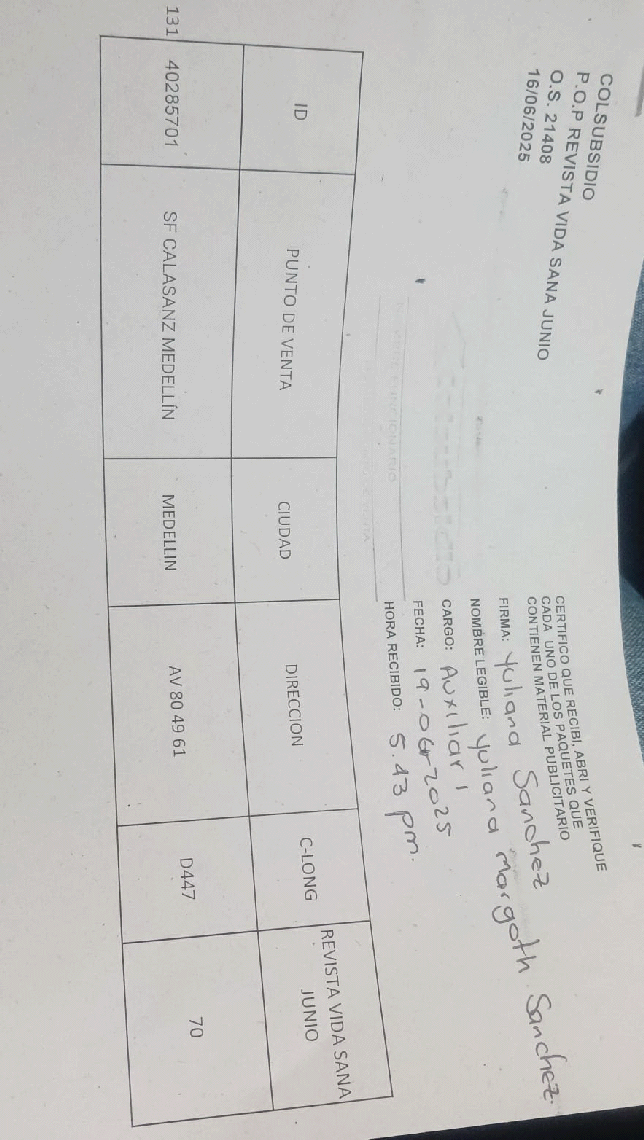 COLSUBSIDIO
P.O.P REVISTA VIDA SANA JUNIO
O.S. 21408
16/06/2025
CERTIFICO QUE RECIBI, ABRI Y VERIFIQUE
CADA UNO DE LOS PAQUETES QUE
CONTIENEN MATERIAL PUBLICITARIO
FIRMA: Yuliana Sanchez
NOMBRE LEGIBLE: Yuliana margoth Sanchez.
CARGO: Auxiliar 1
FECHA: 19-06-2025
HORA RECIBIDO: 5.43 pm.
ID PUNTO DE VENTA CIUDAD DIRECCION C-LONG REVISTA VIDA SANA
JUNIO
131 40285701 SF CALASANZ MEDELLÍN MEDELLIN AV 80 49 61 D447 70